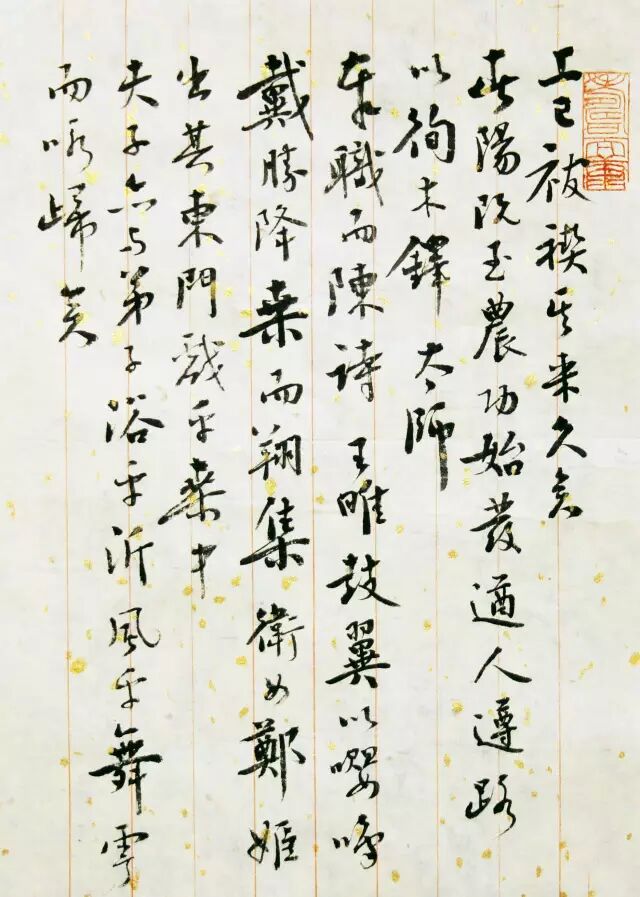 上巳祓禊其來久矣
春陽既至農功始發遒人遵路
以徇木鐸大師
奉職而陳詩王雎鼓翼以嚶鳴
戴勝降桑而翔集衛女鄭姬
出其東門戲乎桑中
夫子亦與弟子浴乎沂風乎舞雩
而詠歸矣